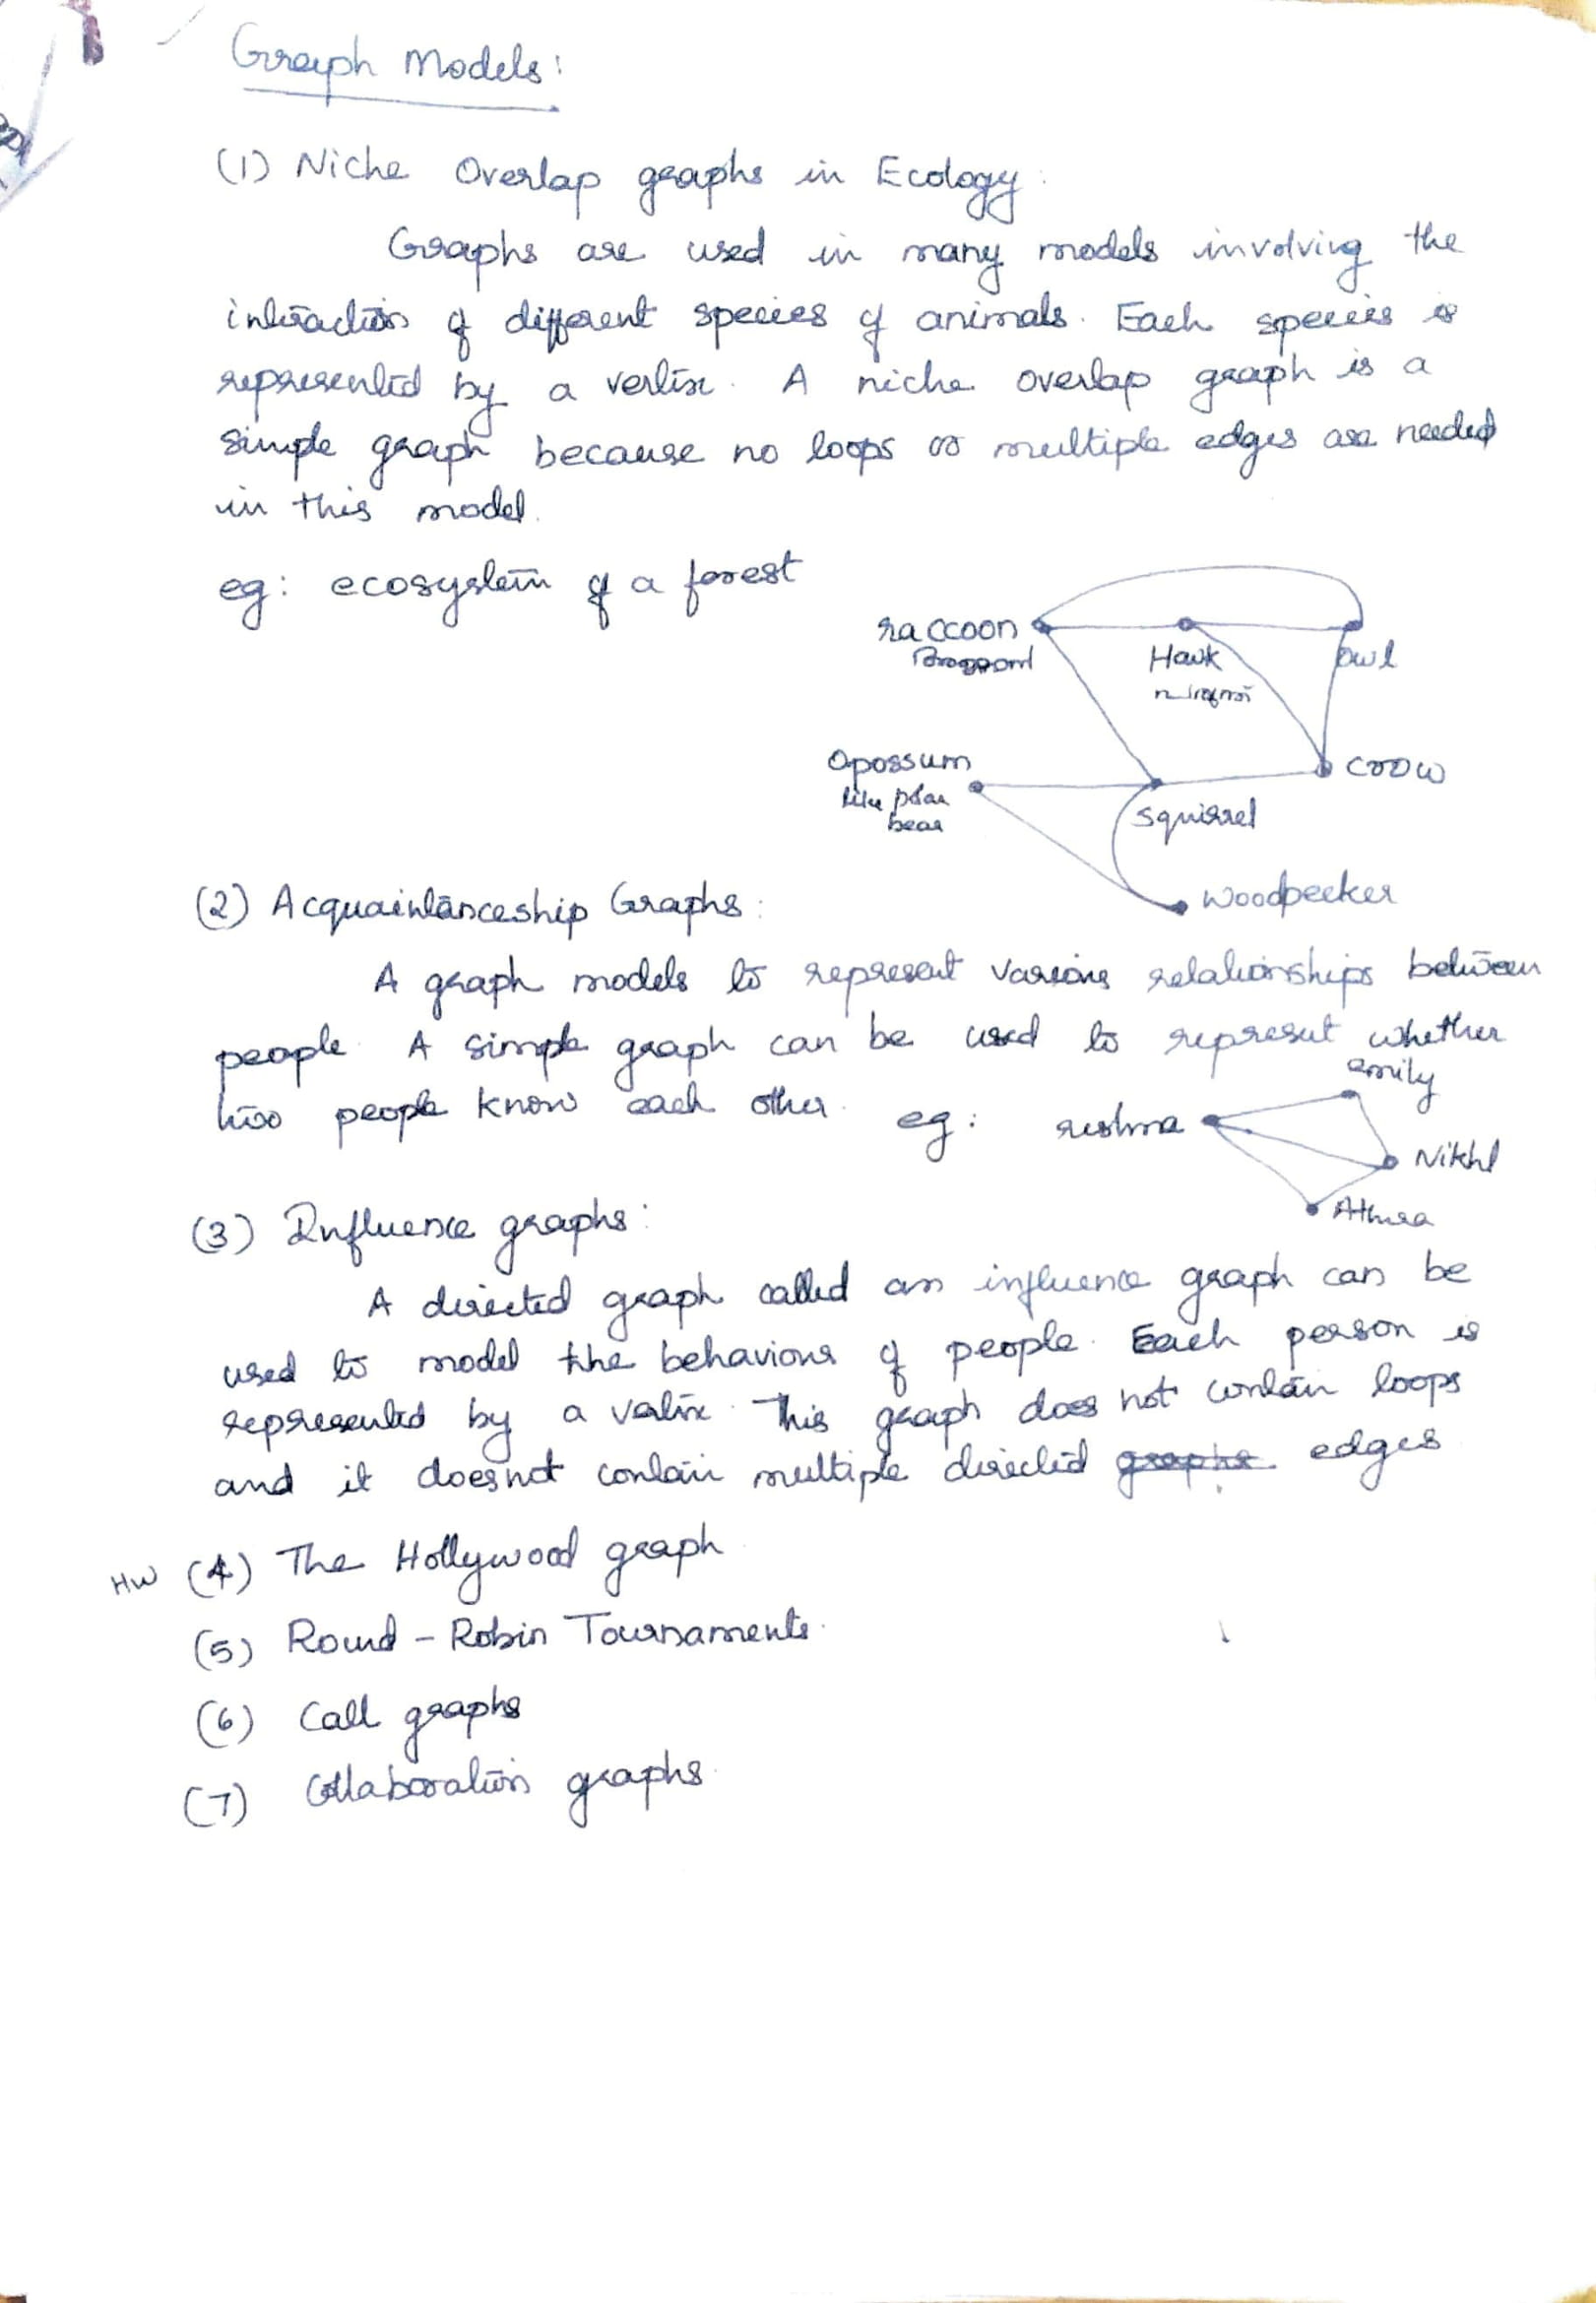 Graph Models:
(1) Niche Overlap graphs in Ecology:
Graphs are used in many models involving the
interaction of different species of animals. Each species is
represented by a vertix. A niche overlap graph is a
simple graph because no loops or multiple edges are needed
in this model.
eg: ecosystem of a forest
raccoon
Hawk
owl
Opossum
like polar
bear
crow
squirrel
woodpecker
(2) Acquaintanceship Graphs:
A graph models to represent various relationships between
people. A simple graph can be used to represut whether
two people know each other. eg:
emily
reshma
Nikhl
Athira
(3) Influence graphs:
A directed graph called an influence graph can be
used to model the behaviour of people. Each person is
represented by a vertix. This graph does not contain loops
and it doesnot contain multiple directed graphs edges
HW (4) The Hollywood graph
(5) Round-Robin Tournaments.
(6) Call graphs
(7) Collaboration graphs.